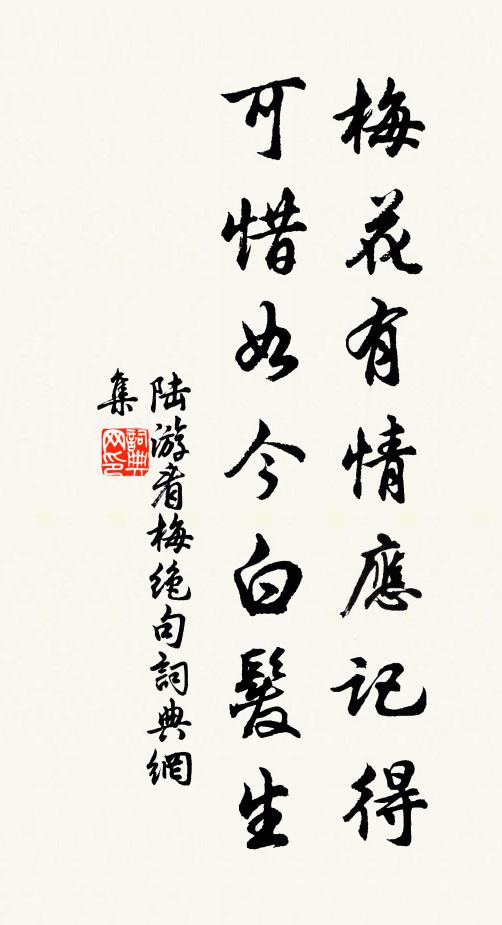 梅花有情應記得
可惜如今白髮生
陆游看梅绝句詞典網
集
詞典
网印